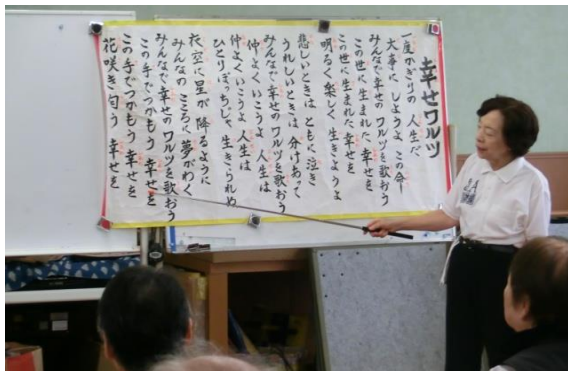 幸せワルツ
一度かぎりの 人生だ
大事に しようよ この命
みんなで幸せのワルツを歌おう
この世に生まれた 幸せを
この世に生まれた 幸せを
明るく楽しく 生きようよ
悲しいときは ともに泣き
うれしいときは 分けあって
みんなで幸せのワルツを歌おう
仲よくいこうよ 人生は
仲よくいこうよ 人生は
ひとりぼっちじゃ 生きられぬ
夜空に星が 降るように
みんなのこころに夢がわく
みんなで幸せのワルツを歌おう
この手でつかもう 幸せを
この手でつかもう 幸せを
花咲き匂う 幸せを